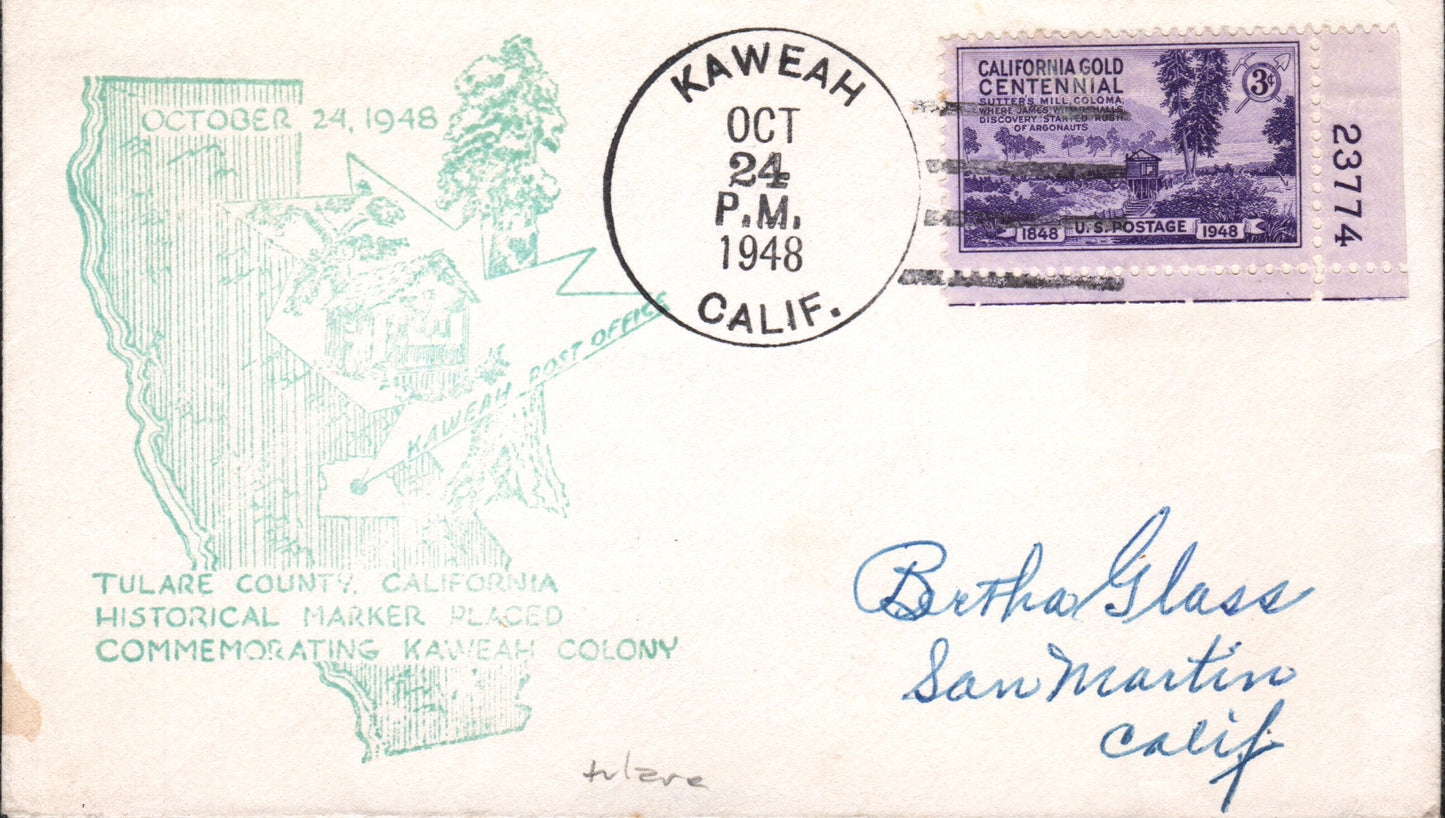 OCTOBER 24, 1948
KAWEAH POST OFFICE
TULARE COUNTY, CALIFORNIA
HISTORICAL MARKER PLACED
COMMEMORATING KAWEAH COLONY
KAWEAH
OCT
24
P.M.
1948
CALIF.
CALIFORNIA GOLD
CENTENNIAL
3¢
SUTTER'S MILL, COLOMA,
WHERE JAMES W. MARSHALL'S
DISCOVERY STARTED RUSH
OF ARGONAUTS
1848 U.S. POSTAGE 1948
23774
Bertha Glass
San Martin
Calif
tulare